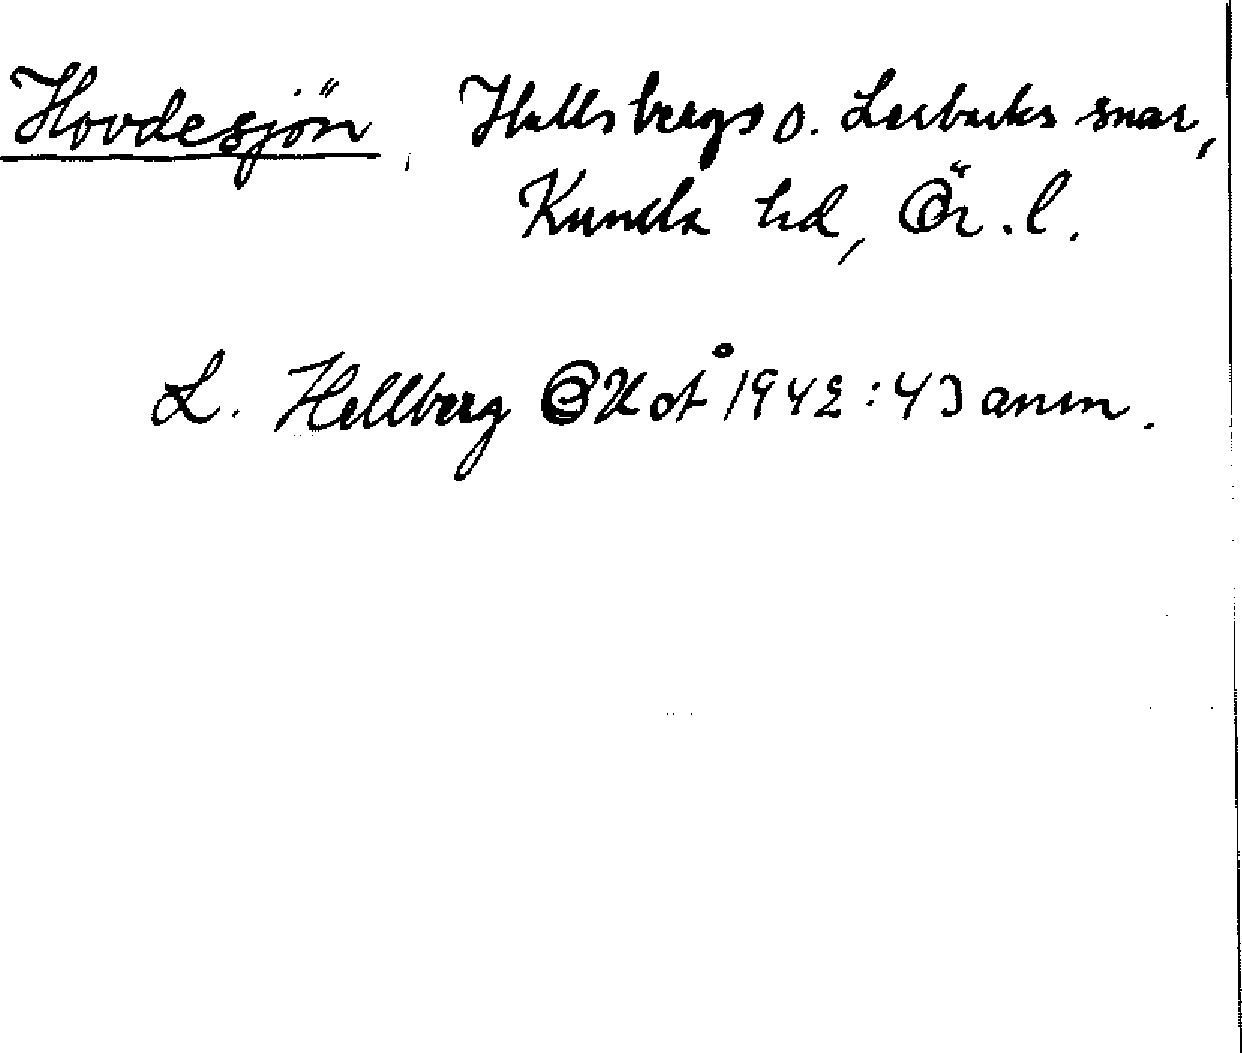 Hovdesjön, Hallsbergs o. Lerbäcks snar,
Kumla hd, Ör. l.
L. Hellberg OUoÅ 1942:43 anm.